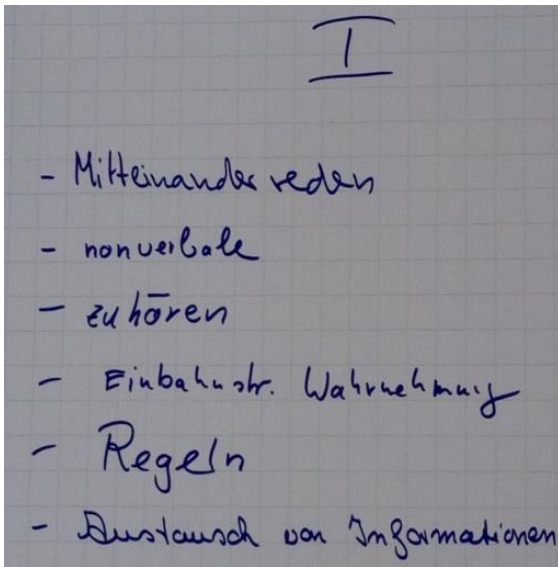 I
- Miteinander reden
- nonverbale
- zuhören
- Einbahnstr. Wahrnehmung
- Regeln
- Austausch von Informationen